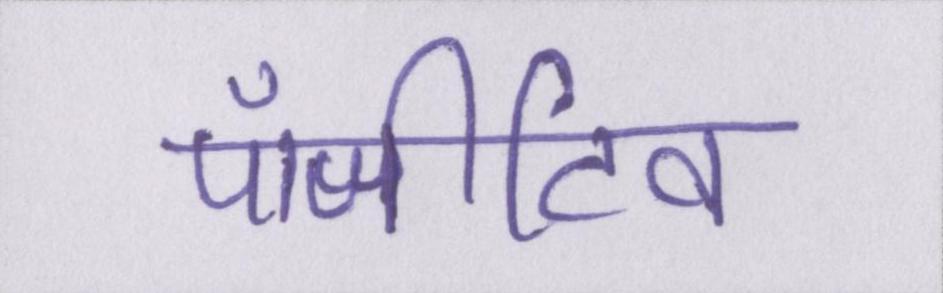 पॉजीटिव